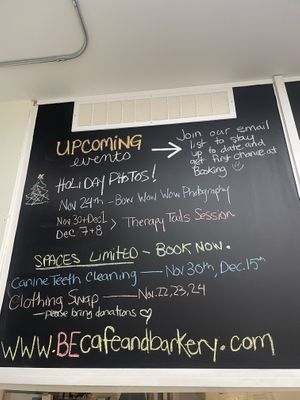 UPCOMING
events
Join our email
list to stay
up to date and
get first chance at
Booking
HOLiDAY PHOTOS!
Nov 24th - Bow Wow Wow Photography
Nov 30 + Dec 1
Dec. 7+8 > Therapy Tails Session
SPACES LIMITED - BOOK NOW.
Canine Teeth Cleaning - Nov 30th, Dec. 15th
Clothing Swap - Nov. 22, 23, 24
- please bring donations
WWW.BEcafeandbarkery.com